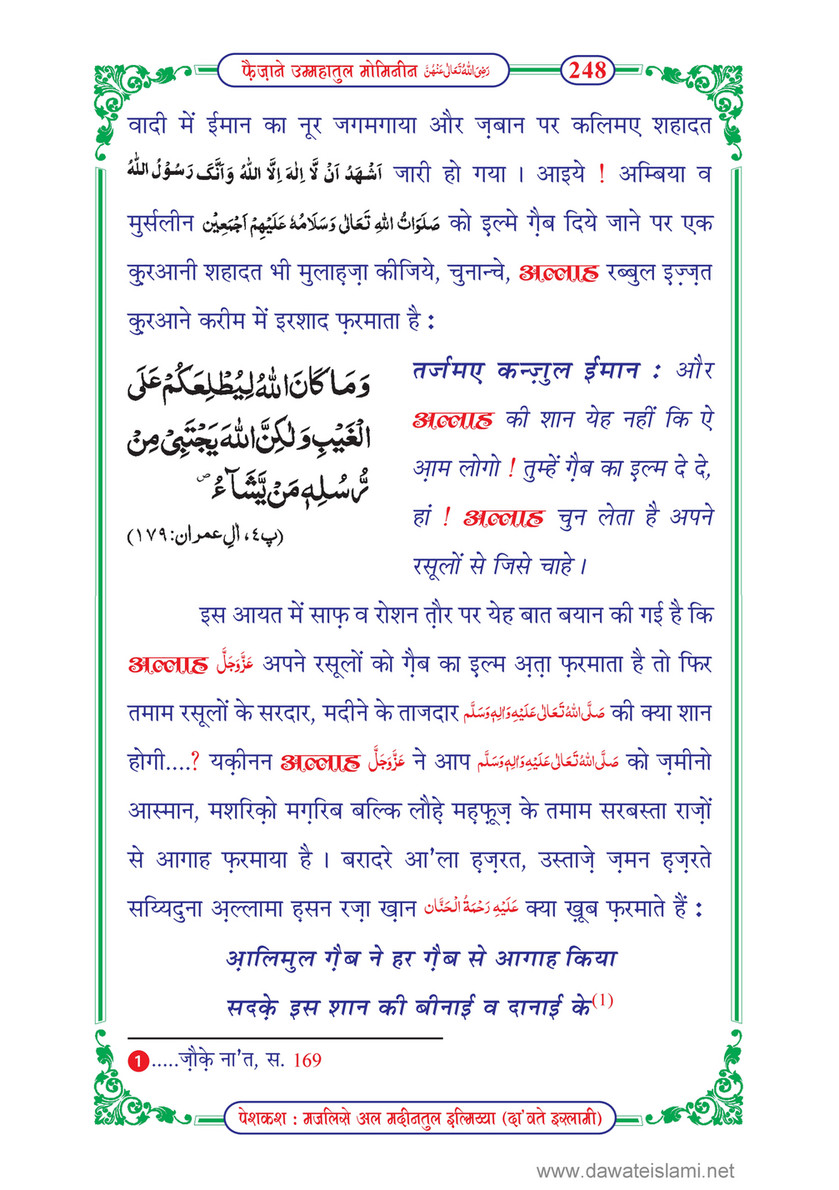 फ़ैज़ाने उम्महातुल मोमिनीन رَضِیَ اللّٰہُ تَعَالٰی عَنْہُنَّ
248
वादी में ईमान का नूर जगमगाया और ज़बान पर कलिमए शहादत
اَشْهَدُ اَنْ لَّا اِلٰهَ اِلَّا اللهُ وَاَنَّکَ رَسُوْلُ اللهُ जारी हो गया । आइये ! अम्बिया व
मुर्सलीन صَلَوَاتُ اللهِ تَعَالٰی وَسَلَامُهٗ عَلَيْهِمْ اَجْمَعِيْن को इल्मे ग़ैब दिये जाने पर एक
क़ुरआनी शहादत भी मुलाह़ज़ा कीजिये, चुनान्चे, अल्लाह रब्बुल इज़्ज़त
क़ुरआने करीम में इरशाद फ़रमाता है :
وَمَا كَانَ اللّٰهُ لِيُطْلِعَكُمْ عَلَى
الْغَيْبِ وَلٰكِنَّ اللّٰهَ يَجْتَبِيْ مِنْ
رُّسُلِهٖ مَنْ يَّشَآءُ ۪
(پ٤، اٰلِ عمران: ١٧٩)
तर्जमए कन्ज़ुल ईमान : और
अल्लाह की शान येह नहीं कि ऐ
आ़म लोगो ! तुम्हें ग़ैब का इल्म दे दे,
हां ! अल्लाह चुन लेता है अपने
रसूलों से जिसे चाहे ।
इस आयत में साफ़ व रोशन त़ौर पर येह बात बयान की गई है कि
अल्लाह عَزَّوَجَلَّ अपने रसूलों को ग़ैब का इल्म अ़त़ा फ़रमाता है तो फिर
तमाम रसूलों के सरदार, मदीने के ताजदार صَلَّى اللهُ تَعَالٰى عَلَيْهِ وَاٰلِهٖ وَسَلَّم की क्या शान
होगी....? यक़ीनन अल्लाह عَزَّوَجَلَّ ने आप صَلَّى اللهُ تَعَالٰى عَلَيْهِ وَاٰلِهٖ وَسَلَّم को ज़मीनो
आस्मान, मशरिक़ो मग़रिब बल्कि लौह़े मह़फ़ूज़ के तमाम सरबस्ता राज़ों
से आगाह फ़रमाया है । बरादरे आ'ला ह़ज़रत, उस्ताज़े ज़मन ह़ज़रते
सय्यिदुना अ़ल्लामा ह़सन रज़ा ख़ान عَلَيْهِ رَحْمَةُ الْحَنَّان क्या ख़ूब फ़रमाते हैं :
आ़लिमुल ग़ैब ने हर ग़ैब से आगाह किया
सदक़े इस शान की बीनाई व दानाई के(1)
1.....ज़ौक़े ना'त, स. 169
पेशकश : मजलिसे अल मदीनतुल इल्मिय्या (दा'वते इस्लामी)
www.dawateislami.net